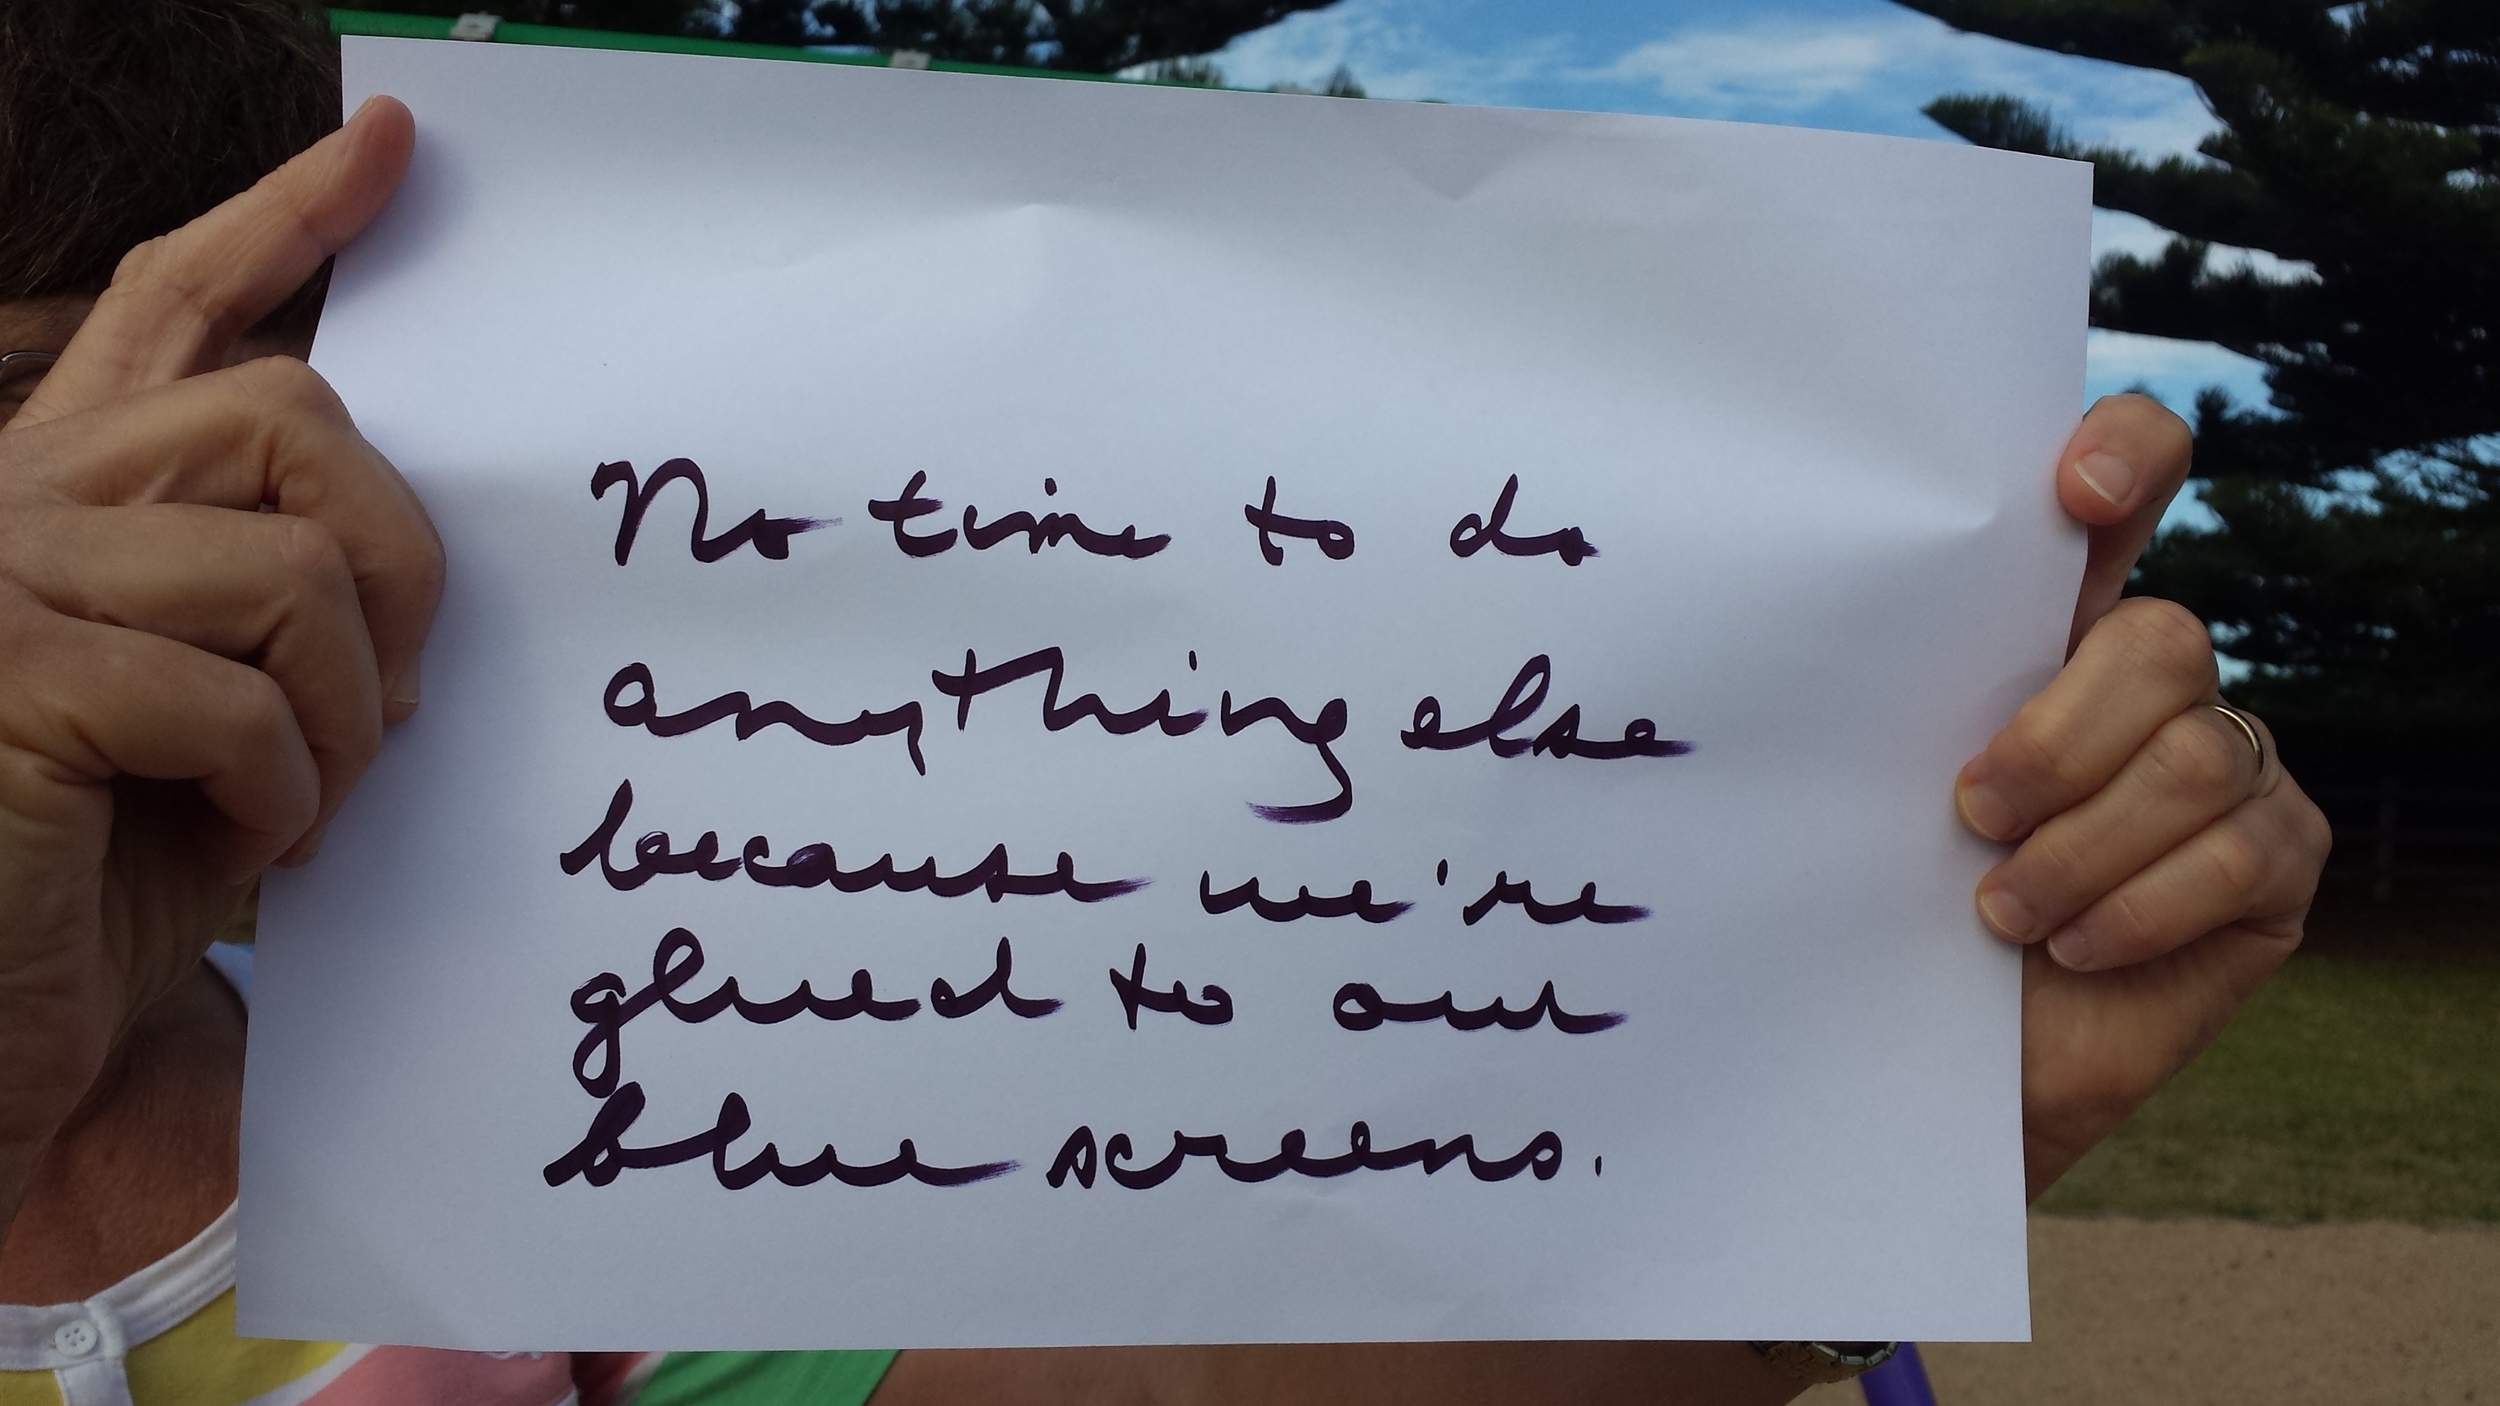 No time to do
anything else
because we're
glued to our
blue screens.